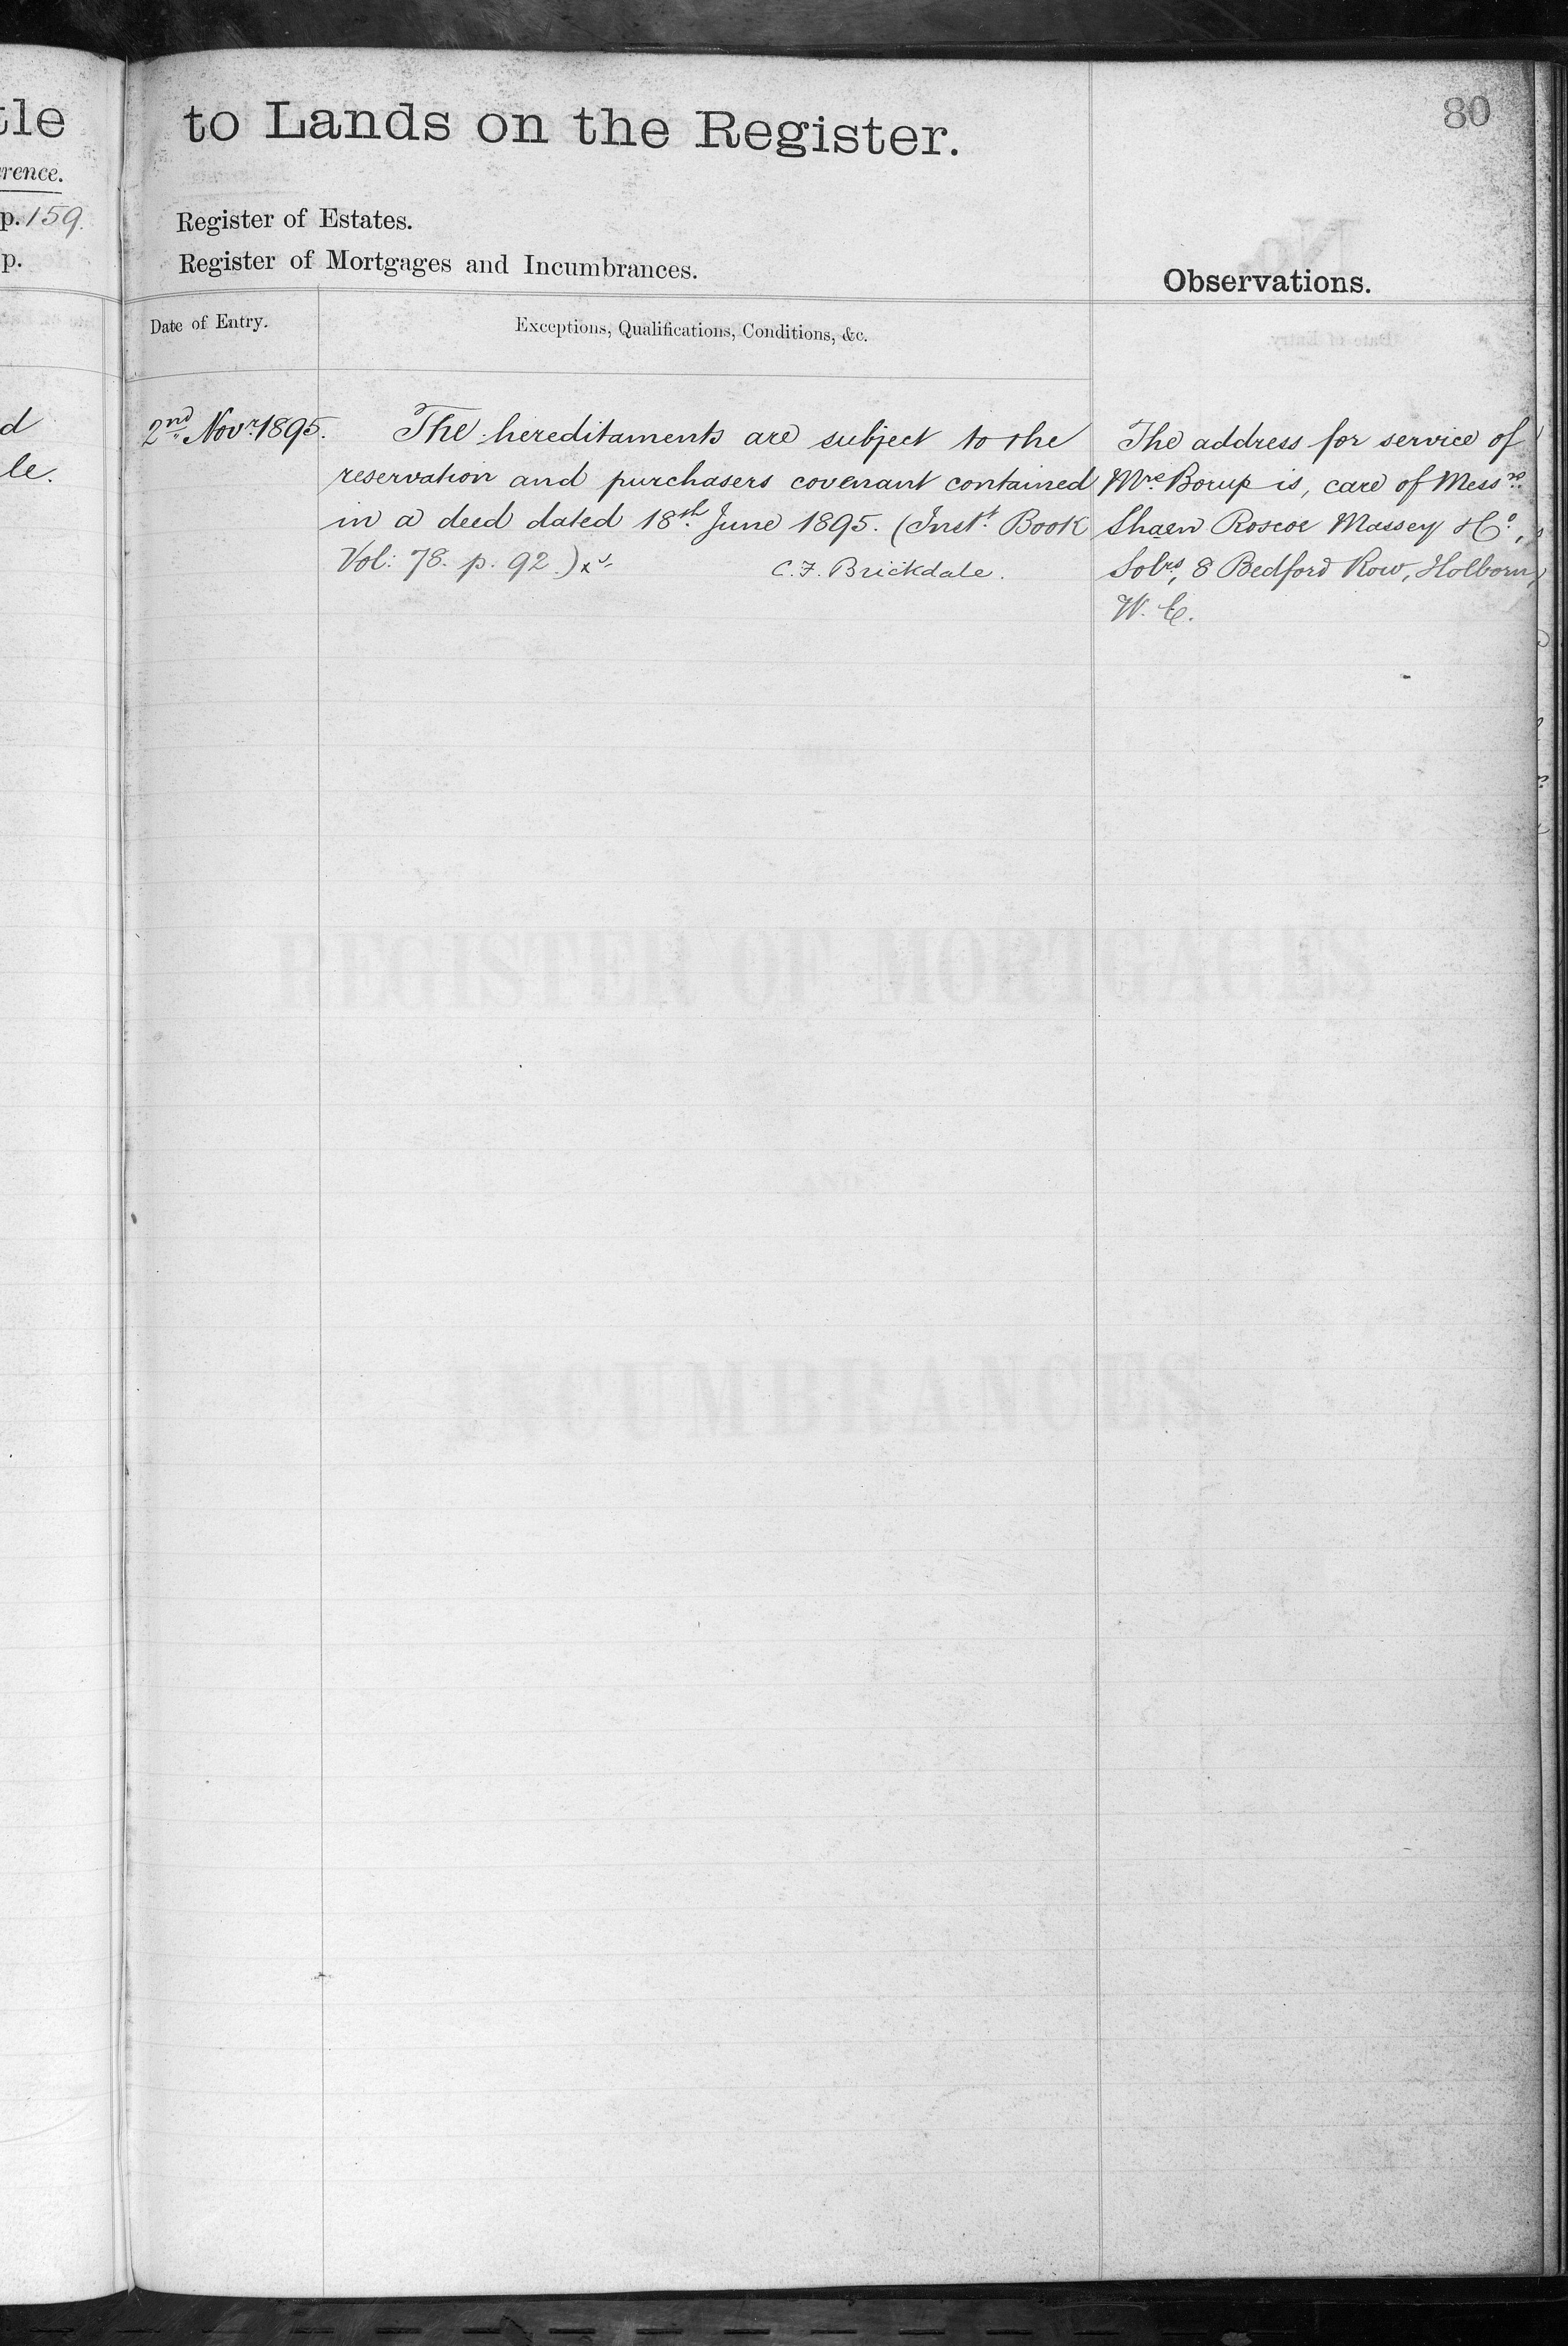 tle
rence.
p. 159.
p.
d
le.
to Lands on the Register.
80
Register of Estates.
Register of Mortgages and Incumbrances.
Observations.
Date of Entry.
Exceptions, Qualifications, Conditions, &c.
2nd Novr. 1895.
The hereditaments are subject to the
reservation and purchasers covenant contained
in a deed dated 18th June 1895. (Inst. Book
Vol: 78. p. 92.)
C. F. Brickdale.
The address for service of
Mrs Borup is, care of Messrs
Shaen Roscoe Massey & Co,
Solrs, 8 Bedford Row, Holborn,
W. C.
No.
Date of Entry
REGISTER OF MORTGAGES
AND
INCUMBRANCES.